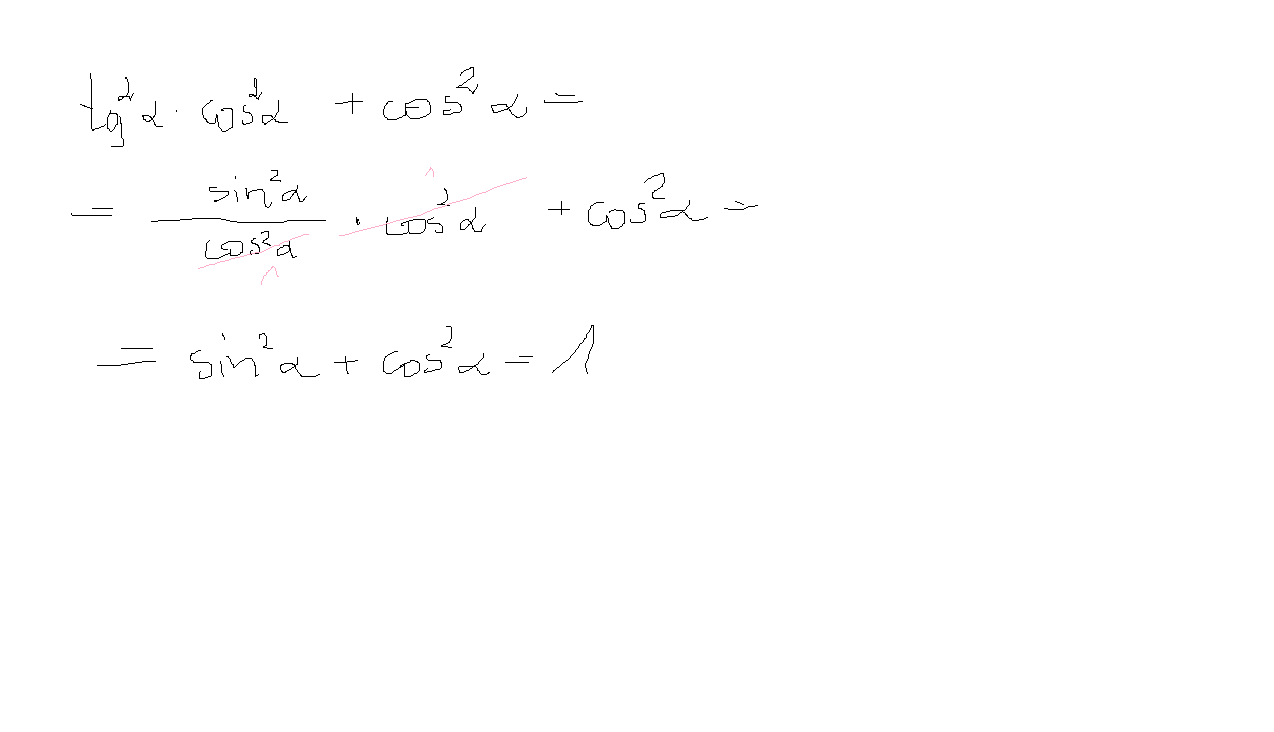 tg²α · cos²α + cos²α =
= sin²α / cos²α · cos²α + cos²α =
= sin²α + cos²α = 1